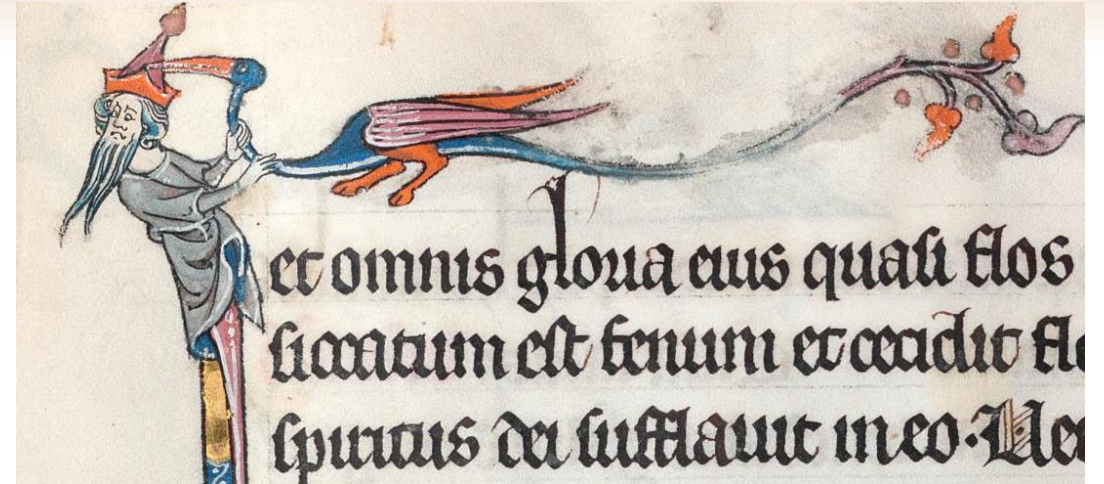 et omnis gloria eius quasi flos
siccatum est fenum et cecidit flo
spiritus dei sufflavit in eo. Vere